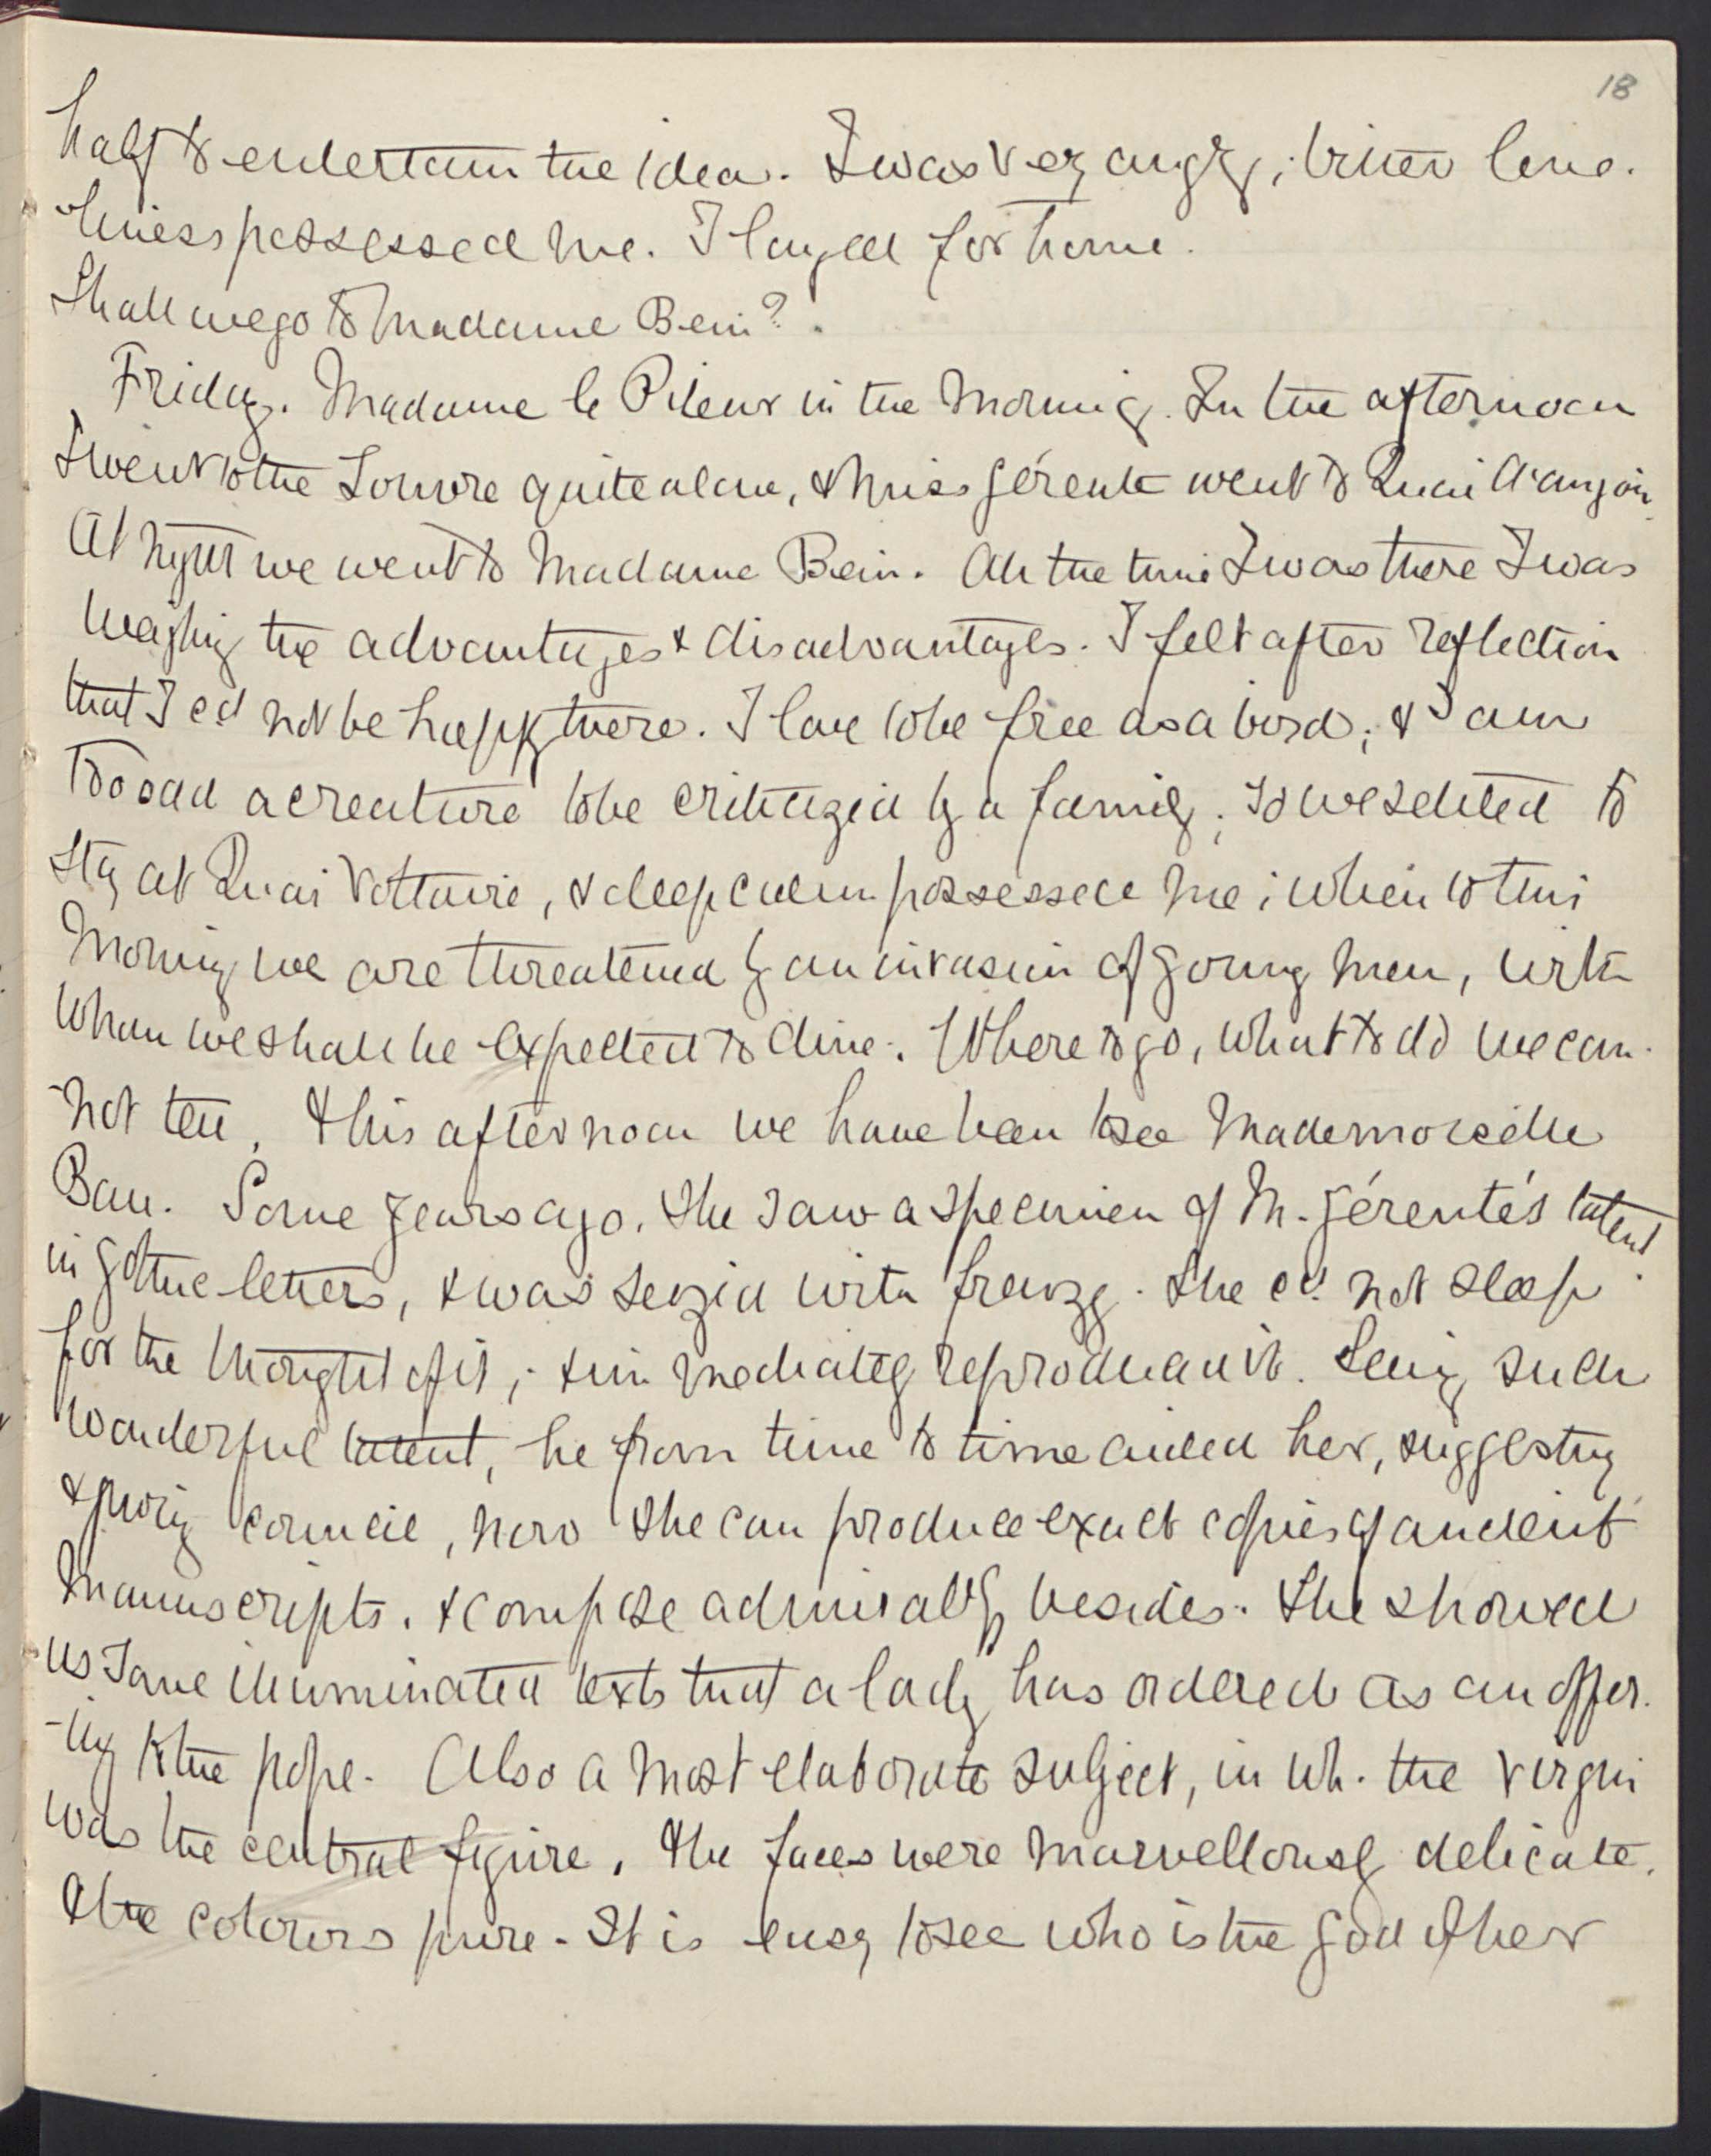 18
half to entertain the idea. I was very angry; bitter lone-
-liness possessed me. I longed for home.
Shall we go to Madame Bein?
Friday. Madame le Pileur in the morning. In the afternoon
I went to the Louvre quite alone, & Miss Gérente went to Quai d'anjou
At night we went to Madame Bein. All the time I was there I was
weighing the advantages & disadvantages. I felt after reflection
that I cd not be happy there. I love to be free as a bird; & I am
too odd a creature to be criticized by a family; so we settled to
stay at Quai Voltaire, & deep calm possessed me; when lo this
morning we are threatened by an invasion of young men, with
whom we shall be expected to dine. Where to go, what to do we can-
-not tell. This afternoon we have been to see Mademoiselle
Bau. Some years ago, she saw a specimen of M. Gérente's talent
in gothic letters, & was seized with frenzy. She cd not sleep
for the thought of it; & immediately reproduced it. Seeing such
wonderful talent, he from time to time aided her, suggesting
& giving council, now she can produce exact copies of ancient
manuscripts. & compose admirably besides. She showed
us some illuminated texts that a lady has ordered as an offer-
-ing to the pope. Also a most elaborate subject, in wh. the virgin
was the central figure. The faces were marvellously delicate.
the colours pure. It is easy to see who is the god of her